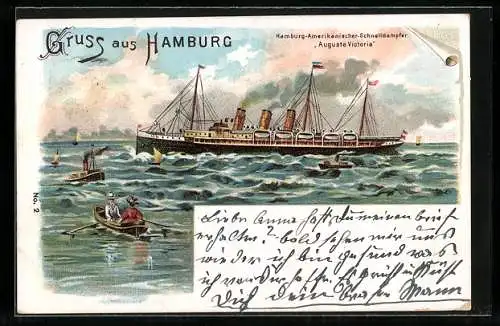 Gruss aus Hamburg
Hamburg-Amerikanischer-Schnelldampfer
„Auguste Victoria"
No. 2
Liebe Anna hast Du meinen brief
erhalten? bald sehen wir uns
wieder ich bin gesund was
ich von
Dich dein Mann